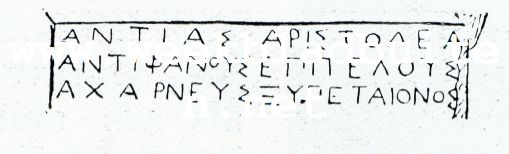 ΑΝΤΙΑΣ ΑΡΙΣΤΟΛΕΑ
ΑΝΤΙΦΑΝΟΥΣ ΕΠΙΤΕΛΟΥΣ
ΑΧΑΡΝΕΥΣ ΞΥΠΕΤΑΙΟΝΟΣ